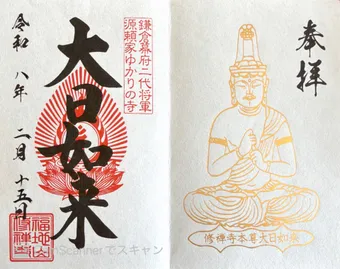 奉拝
鎌倉幕府二代将軍
源頼家ゆかりの寺
大日如来
令和八年二月十五日
福地山
修禅寺
修禅寺本尊大日如来
Scannerでスキャン